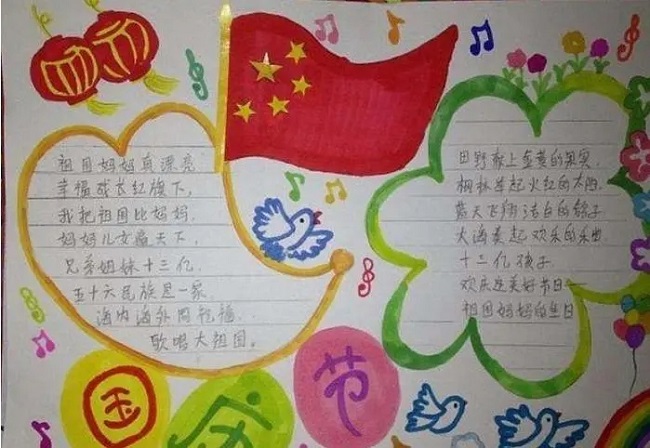 祖国妈妈真漂亮
幸福成长红旗下,
我把祖国比妈妈,
妈妈儿女遍天下,
兄弟姐妹十三亿
五十六民族是一家
海内海外同祝福
歌唱大祖国。
田野献上金黄的果实,
枫林举起火红的太阳,
蓝天飞翔洁白的鸽子
大海奏起欢乐的乐曲
十三亿孩子
欢庆这美好节日——
祖国妈妈的生日
国庆节